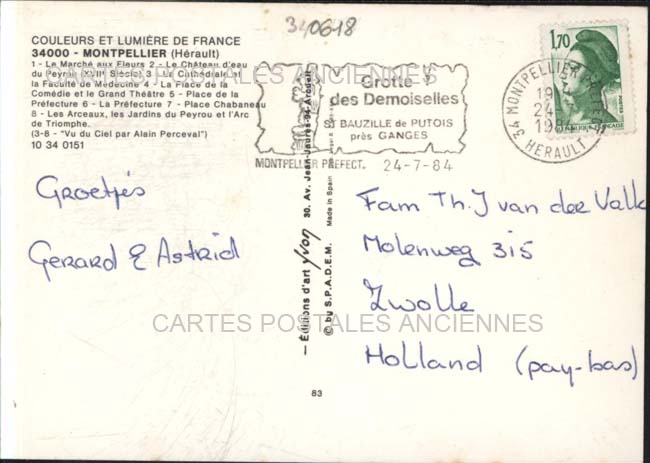 340618
COULEURS ET LUMIÈRE DE FRANCE
34000 - MONTPELLIER (Hérault)
1 - Le Marché aux Fleurs 2 - Le Château d'eau
du Peyrou (XVIIIe Siècle) 3 - La Cathédrale et
la Faculté de Médecine 4 - La Place de la
Comédie et le Grand Théâtre 5 - Place de la
Préfecture 6 - La Préfecture 7 - Place Chabaneau
8 - Les Arceaux, les Jardins du Peyrou et l'Arc
de Triomphe.
(3-8 - "Vu du Ciel par Alain Perceval")
10 34 0151
CARTES POSTALES ANCIENNES
Grotte
des Demoiselles
St BAUZILLE de PUTOIS
près GANGES
MONTPELLIER PREFECT. 24-7-84
34 MONTPELLIER
HERAULT
1,70
FRANÇAISE
Groetjes
Gerard & Astrid
— Éditions d'art yvon 30, Av. Jean-Jaurès-94-Arcueil
© by S.P.A.D.E.M. Made in Spain
Fam Th. J van der Valk
Molenweg 315
Zwolle
Holland (pay-bas)
CARTES POSTALES ANCIENNES
83